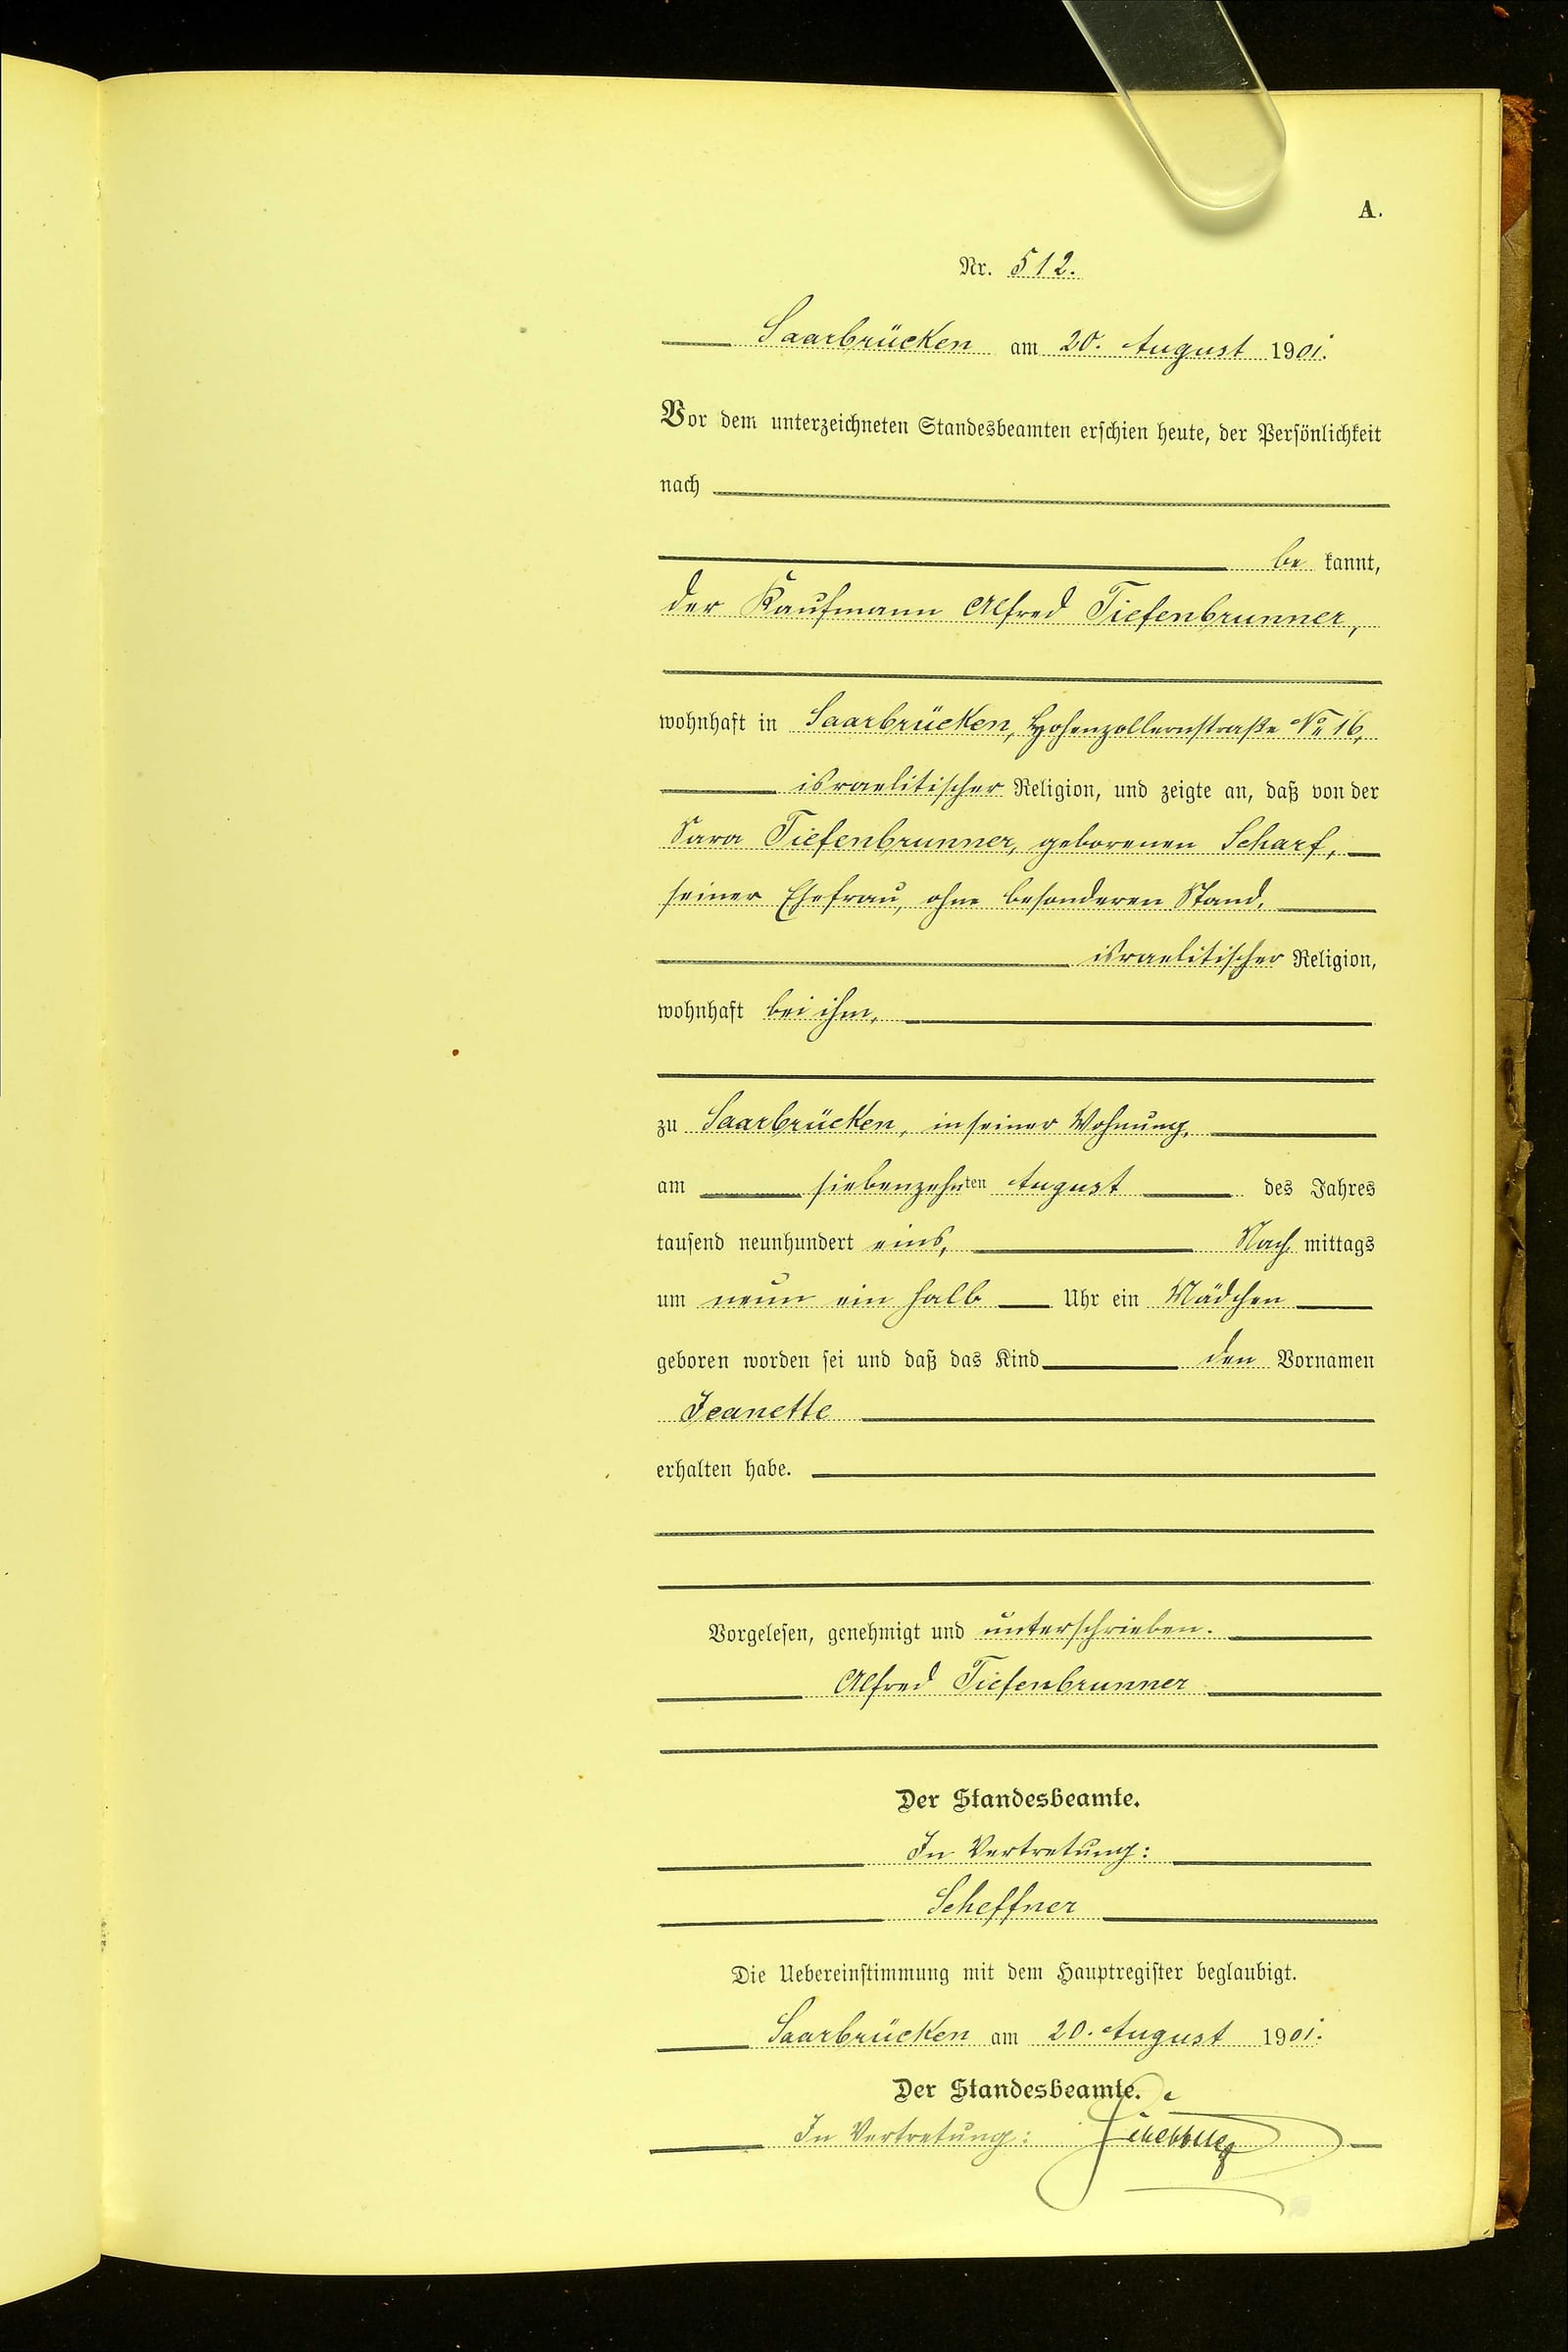 A.
Nr. 512.
Saarbrücken am 20. August 1901.
Vor dem unterzeichneten Standesbeamten erschien heute, der Persönlichkeit
nach
be kannt,
der Kaufmann Alfred Tiefenbrunner,
wohnhaft in Saarbrücken, Hohenzollernstraße No 16,
israelitischer Religion, und zeigte an, daß von der
Sara Tiefenbrunner, geborenen Scharf,
seiner Ehefrau, ohne besonderen Stand,
israelitischer Religion,
wohnhaft bei ihm,
zu Saarbrücken, in seiner Wohnung,
am siebenzehnten August des Jahres
tausend neunhundert eins, Nach mittags
um neun ein halb Uhr ein Mädchen
geboren worden sei und daß das Kind den Vornamen
Jeanette
erhalten habe.
Vorgelesen, genehmigt und unterschrieben.
Alfred Tiefenbrunner
Der Standesbeamte.
In Vertretung:
Scheffner
Die Uebereinstimmung mit dem Hauptregister beglaubigt.
Saarbrücken am 20. August 1901.
Der Standesbeamte.
In Vertretung: Scheffner